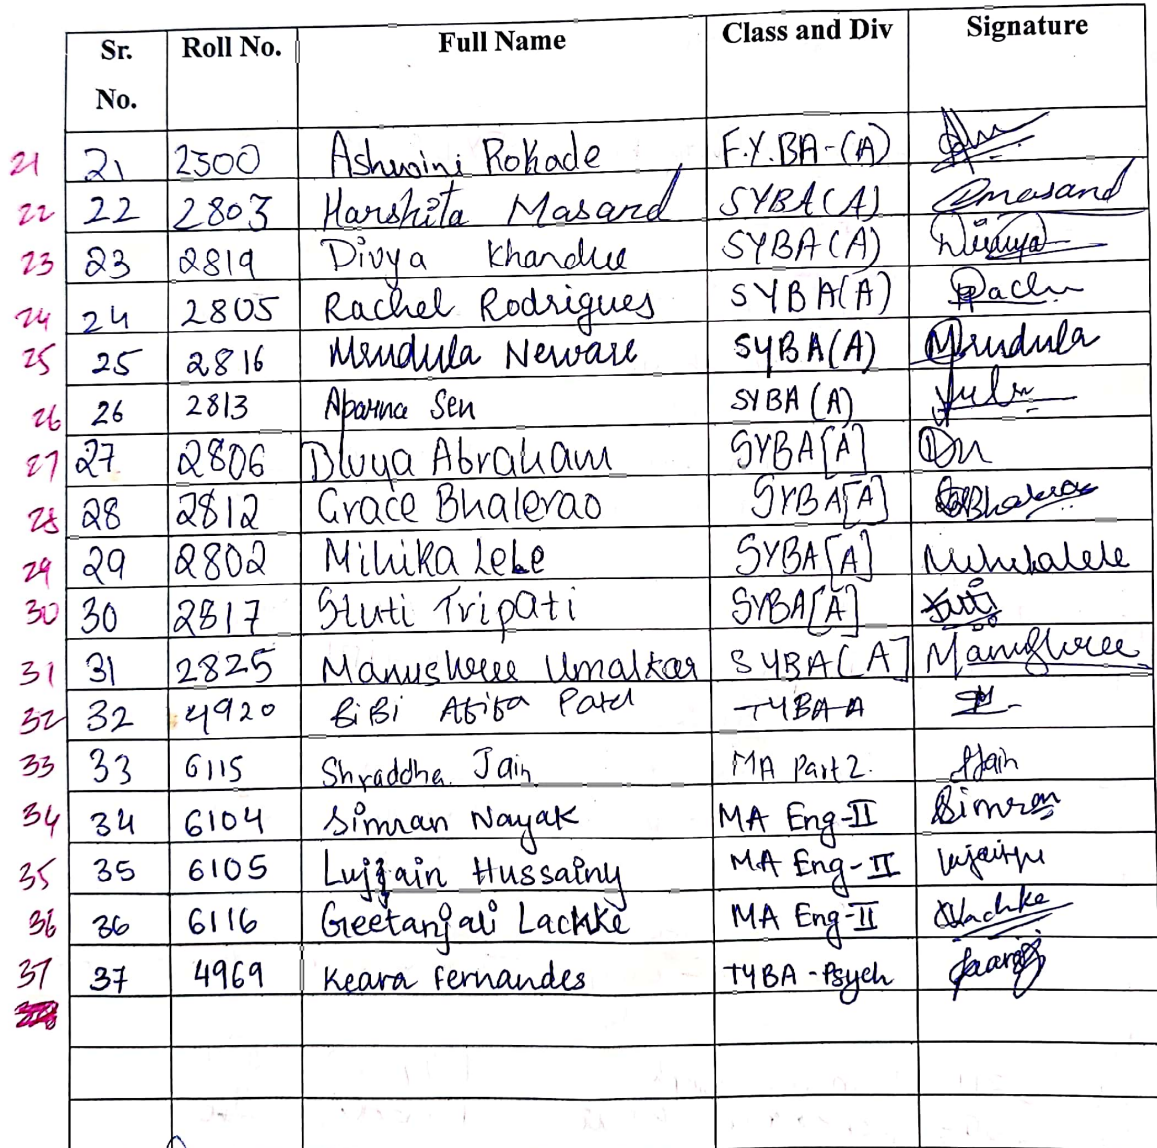 Sr. No. Roll No. Full Name Class and Div Signature
21 21 2500 Ashwini Rokade F.Y.BA-(A)
22 22 2803 Harshita Masand SYBA(A) Masand
23 23 2819 Divya Khandve SYBA(A)
24 24 2805 Rachel Rodrigues SYBA(A)
25 25 2816 Mrudula Neware SYBA(A) Mrudula
26 26 2813 Aparna Sen SYBA(A)
27 27 2806 Divya Abraham SYBA[A]
28 28 2812 Grace Bhalerao SYBA[A]
29 29 2802 Mihika Lele SYBA[A] Mihikalele
30 30 2817 Stuti Tripati SYBA[A]
31 31 2825 Manushree Umalkar SYBA[A] Manushree
32 32 4920 BiBi Patel TYBA A
33 33 6115 Shraddha Jain MA Part 2. Jain
34 34 6104 Simran Nayak MA Eng-II Simran
35 35 6105 Lujjain Hussainy MA Eng-II
36 36 6116 Geetanjali Lachke MA Eng-II Lachke
37 37 4969 Keara Fernandes TYBA-Psych